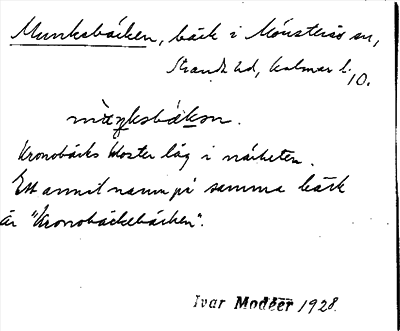 Munksbäcken, bäck i Mönsterås sn,
Stranda hd, Kalmar l.
10.
mùŋksbäkən.
Kronobäcks kloster låg i närheten.
Ett annat namn på samma bäck
är "Kronobäckebäcken".
Ivar Modéer 1928